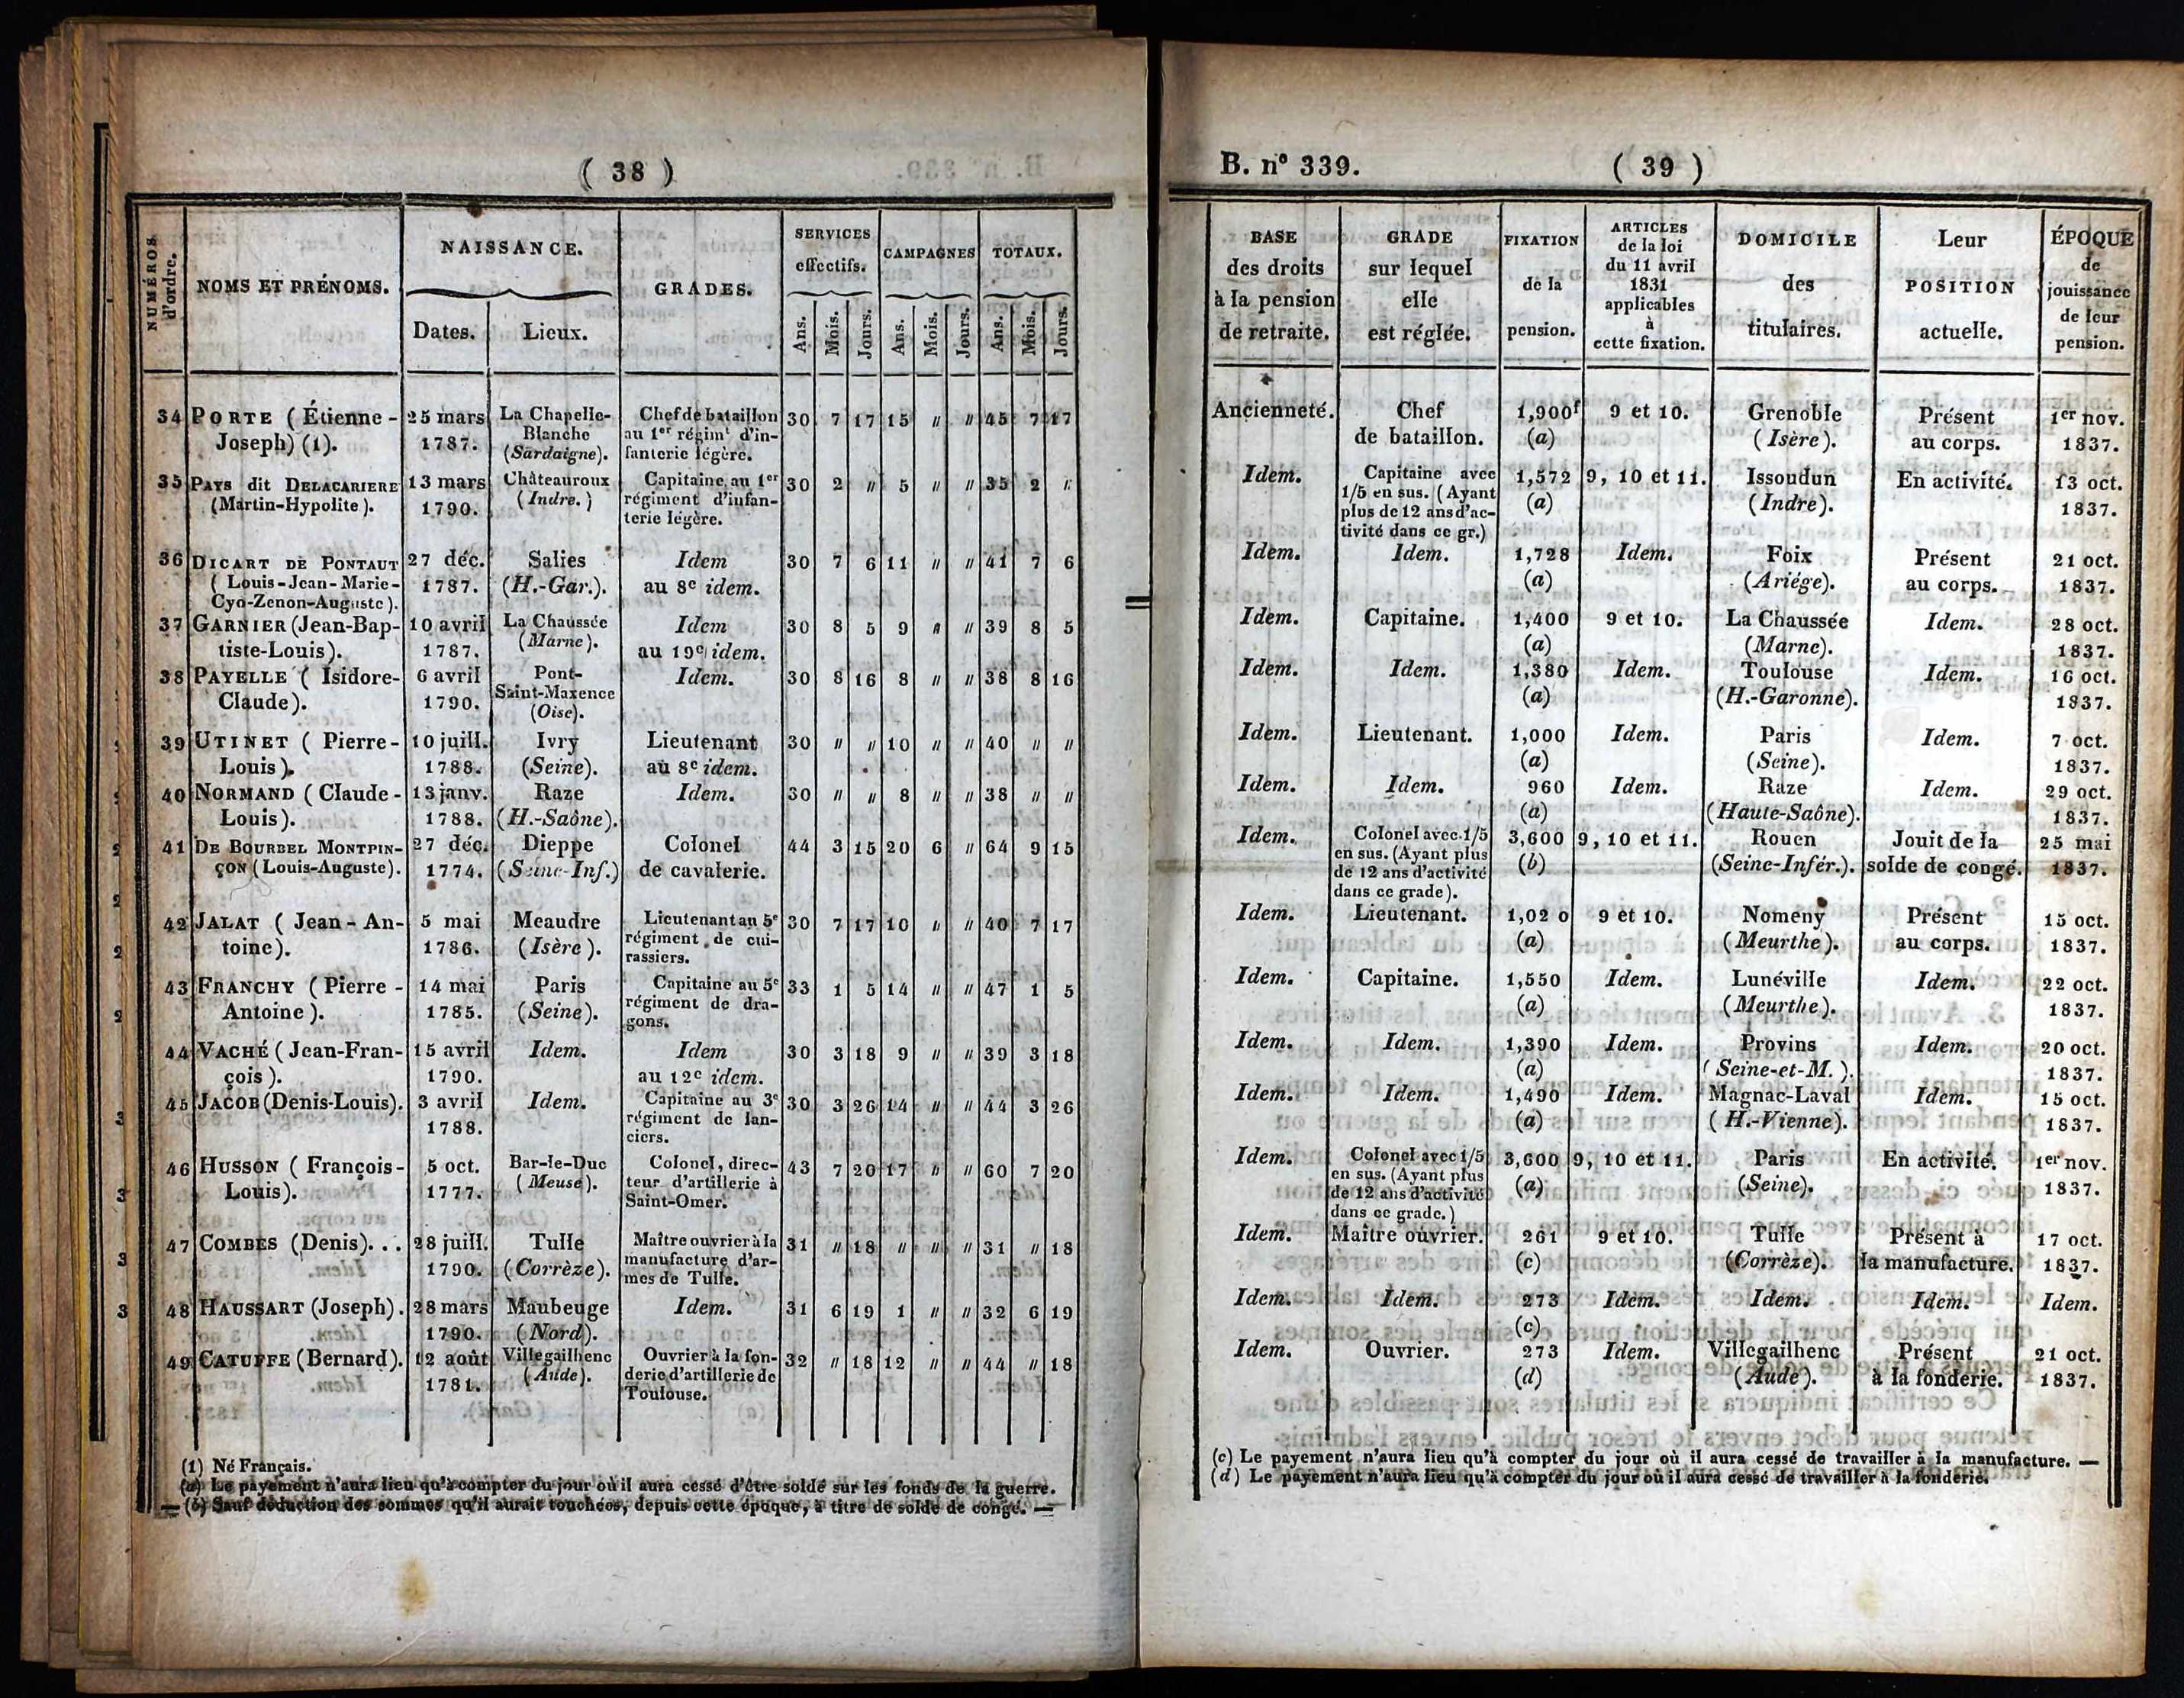 ( 38 )
NUMÉROS d'ordre. NOMS ET PRÉNOMS. NAISSANCE. Dates. Lieux. GRADES. SERVICES effectifs. Ans. Mois. Jours. CAMPAGNES Ans. Mois. Jours. TOTAUX. Ans. Mois. Jours.
34 PORTE (Étienne- 25 mars La Chapelle- Chef de bataillon 30 7 17 15 " " 45 7 17
Joseph) (1). 1787. Blanche au 1er régimt d'in-
(Sardaigne). fanterie légère.
35 PAYS dit DELACARIERE 13 mars Châteauroux Capitaine au 1er 30 2 " 5 " " 35 2 "
(Martin-Hypolite). 1790. (Indre.) régiment d'infan-
terie légère.
36 DICART DE PONTAUT 27 déc. Salies Idem 30 7 6 11 " " 41 7 6
(Louis-Jean-Marie- 1787. (H.-Gar.). au 8e idem.
Cyo-Zenon-Auguste).
37 GARNIER (Jean-Bap- 10 avril La Chaussée Idem 30 8 5 9 " " 39 8 5
tiste-Louis). 1787. (Marne). au 19e idem.
38 PAYELLE (Isidore- 6 avril Pont- Idem. 30 8 16 8 " " 38 8 16
Claude). 1790. Saint-Maxence
(Oise).
39 UTINET (Pierre- 10 juill. Ivry Lieutenant 30 " " 10 " " 40 " "
Louis). 1788. (Seine). au 8e idem.
40 NORMAND (Claude- 13 janv. Raze Idem. 30 " " 8 " " 38 " "
Louis). 1788. (H.-Saône).
41 DE BOURBEL MONTPIN- 27 déc. Dieppe Colonel 44 3 15 20 6 " 64 9 15
ÇON (Louis-Auguste). 1774. (Seine-Inf.) de cavalerie.
42 JALAT (Jean-An- 5 mai Meaudre Lieutenant au 5e 30 7 17 10 " " 40 7 17
toine). 1786. (Isère). régiment de cui-
rassiers.
43 FRANCHY (Pierre- 14 mai Paris Capitaine au 5e 33 1 5 14 " " 47 1 5
Antoine). 1785. (Seine). régiment de dra-
gons.
44 VACHÉ (Jean-Fran- 15 avril Idem. Idem 30 3 18 9 " " 39 3 18
çois). 1790. au 12e idem.
45 JACOB (Denis-Louis). 3 avril Idem. Capitaine au 3e 30 3 26 14 " " 44 3 26
1788. régiment de lan-
ciers.
46 HUSSON (François- 5 oct. Bar-le-Duc Colonel, direc- 43 7 20 17 " " 60 7 20
Louis). 1777. (Meuse). teur d'artillerie à
Saint-Omer.
47 COMBES (Denis)... 28 juill. Tulle Maître ouvrier à la 31 " 18 " " " 31 " 18
1790. (Corrèze). manufacture d'ar-
mes de Tulle.
48 HAUSSART (Joseph). 28 mars Maubeuge Idem. 31 6 19 1 " " 32 6 19
1790. (Nord).
49 CATUFFE (Bernard). 12 août Villegailhenc Ouvrier à la fon- 32 " 18 12 " " 44 " 18
1781. (Aude). derie d'artillerie de
Toulouse.
(1) Né Français.
(a) Le payement n'aura lieu qu'à compter du jour où il aura cessé d'être soldé sur les fonds de la guerre.
— (b) Sauf déduction des sommes qu'il aurait touchées, depuis cette époque, à titre de solde de congé. —
B. n° 339. ( 39 )
BASE des droits à la pension de retraite. GRADE sur lequel elle est réglée. FIXATION de la pension. ARTICLES de la loi du 11 avril 1831 applicables à cette fixation. DOMICILE des titulaires. Leur POSITION actuelle. ÉPOQUE de jouissance de leur pension.
Ancienneté. Chef 1,900f 9 et 10. Grenoble Présent 1er nov.
de bataillon. (a) (Isère). au corps. 1837.
Idem. Capitaine avec 1,572 9, 10 et 11. Issoudun En activité. 13 oct.
1/5 en sus. (Ayant (a) (Indre). 1837.
plus de 12 ans d'ac-
tivité dans ce gr.)
Idem. Idem. 1,728 Idem. Foix Présent 21 oct.
(a) (Ariége). au corps. 1837.
Idem. Capitaine. 1,400 9 et 10. La Chaussée Idem. 28 oct.
(a) (Marne). 1837.
Idem. Idem. 1,380 Idem. Toulouse Idem. 16 oct.
(a) (H.-Garonne). 1837.
Idem. Lieutenant. 1,000 Idem. Paris Idem. 7 oct.
(a) (Seine). 1837.
Idem. Idem. 960 Idem. Raze Idem. 29 oct.
(a) (Haute-Saône). 1837.
Idem. Colonel avec 1/5 3,600 9, 10 et 11. Rouen Jouit de la 25 mai
en sus. (Ayant plus (b) (Seine-Infér.). solde de congé. 1837.
de 12 ans d'activité
dans ce grade).
Idem. Lieutenant. 1,020 9 et 10. Nomeny Présent 15 oct.
(a) (Meurthe). au corps. 1837.
Idem. Capitaine. 1,550 Idem. Lunéville Idem. 22 oct.
(a) (Meurthe). 1837.
Idem. Idem. 1,390 Idem. Provins Idem. 20 oct.
(a) (Seine-et-M.). 1837.
Idem. Idem. 1,490 Idem. Magnac-Laval Idem. 15 oct.
(a) (H.-Vienne). 1837.
Idem. Colonel avec 1/5 3,600 9, 10 et 11. Paris En activité. 1er nov.
en sus. (Ayant plus (a) (Seine). 1837.
de 12 ans d'activité
dans ce grade.)
Idem. Maître ouvrier. 261 9 et 10. Tulle Présent à 17 oct.
(c) (Corrèze). la manufacture. 1837.
Idem. Idem. 273 Idem. Idem. Idem. Idem.
(c)
Idem. Ouvrier. 273 Idem. Villegailhenc Présent 21 oct.
(d) (Aude). à la fonderie. 1837.
(c) Le payement n'aura lieu qu'à compter du jour où il aura cessé de travailler à la manufacture. —
(d) Le payement n'aura lieu qu'à compter du jour où il aura cessé de travailler à la fonderie.